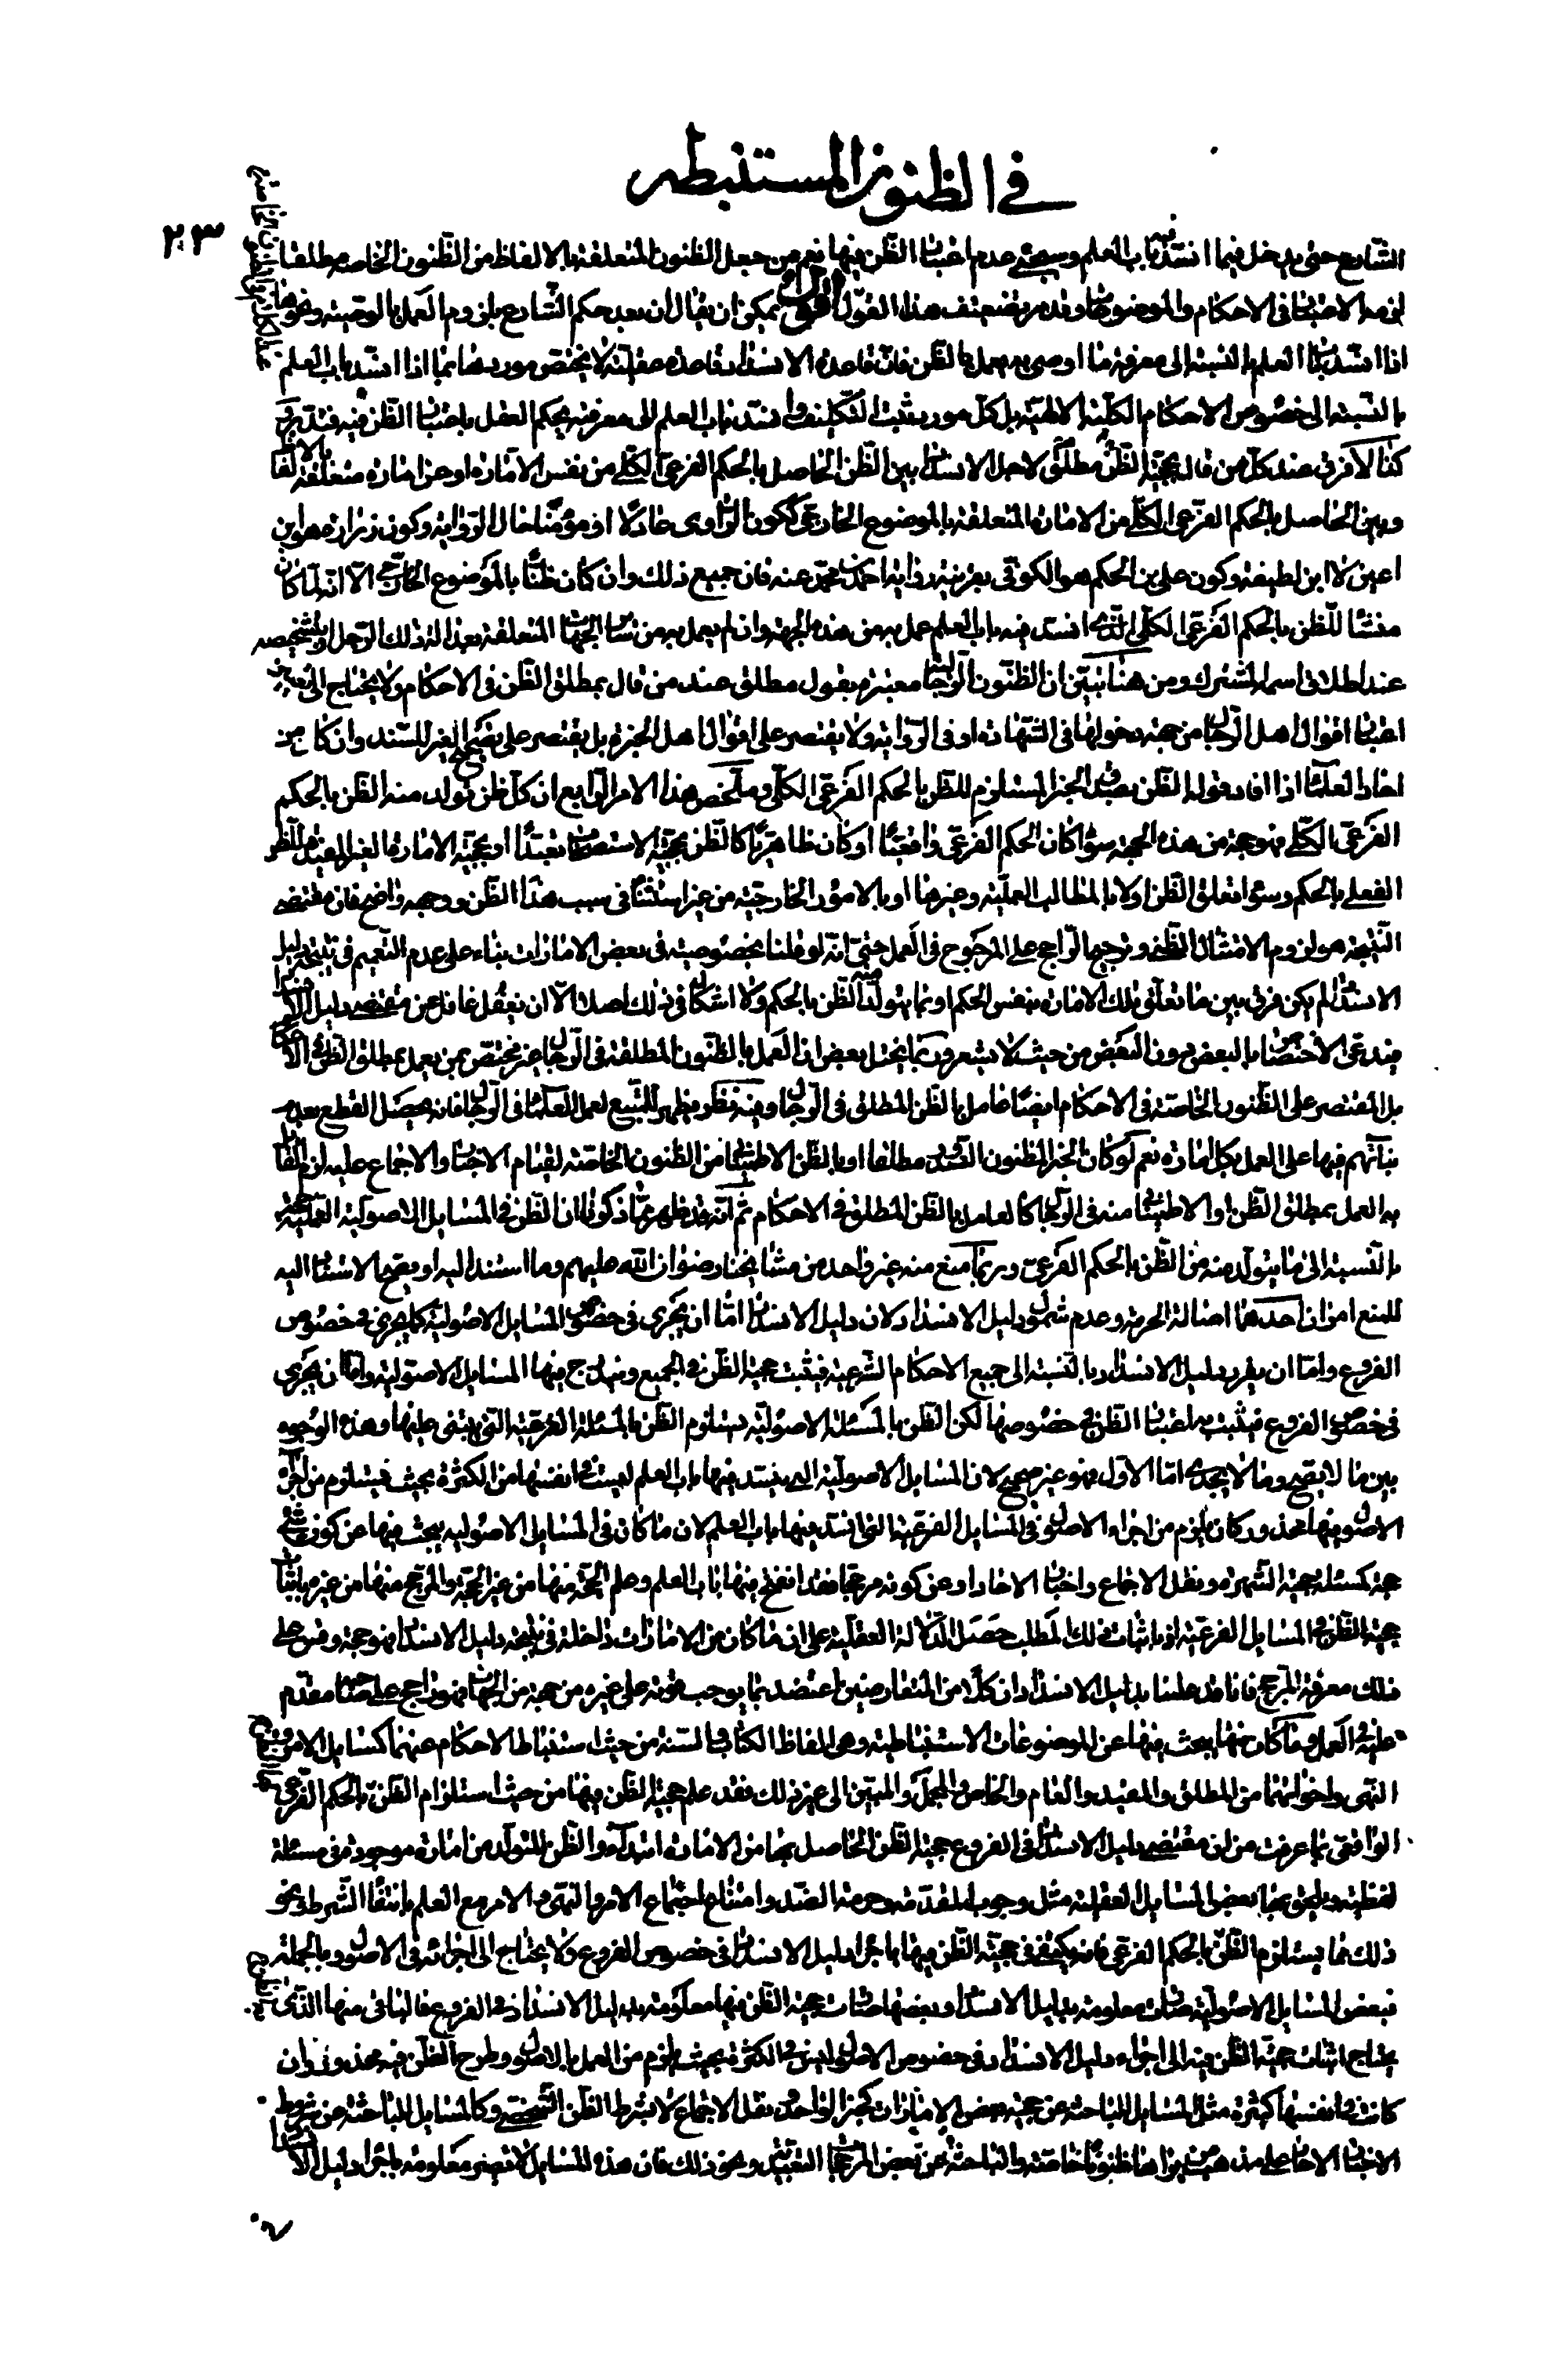 في الظنون المستنبطه
٢٣
الشارع حتى يدخل فيما انسد فيه باب العلم وسيجئ عدم اعتبار الظن فيها نعم من جعل الظنون المتعلقة بالالفاظ من الظنون الخاصه مطلقا
لزمه الاعتبار في الاحكام والموضوعات وقد مر تضعيف هذا القول يمكن ان يقال ان بعد حكم الشارع بلزوم العمل بالوصية ونحوها
اذا انسد باب العلم بالنسبة الى معرفة ما اوصى به يعمل بالظن فان قاعدة الانسداد قاعدة عقلية لا يختص موردها بما اذا انسد باب العلم
بالنسبة الى خصوص الاحكام الكلية الالهية بل كل مورد يثبت التكليف وانسد باب العلم الى معرفته يحكم العقل باعتبار الظن فيه فتدبر
كذا لا فرق عند كل من قال بحجية الظن مطلقا لاجل الانسداد بين الظن الحاصل بالحكم الفرعي الكلي من نفس الامارة او عن امارة متعلقة بالالفاظ
وبين الحاصل بالحكم الفرعي الكلي من الامارة المتعلقة بالموضوع الخارجي ككون الراوى عادلا او مؤمنا حال الرواية وكون زرارة هو ابن
اعين لا ابن لطيفة وكون علي بن الحكم هو الكوفي بقرينة رواية احمد بن محمد عنه فان جميع ذلك وان كان ظنا بالموضوع الخارجي الا انه لما كان
منشئا للظن بالحكم الفرعي الكلي الذي انسد فيه باب العلم عمل به من هذه الجهة وان لم يعمل به من ساير الجهات المتعلقة بعدالة ذلك الرجل او بتشخيصه
عند اطلاق اسمه المشترك ومن هنا تبين ان الظنون الرجالية معتبرة بقول مطلق عند من قال بمطلق الظن في الاحكام ولا يحتاج الى تعيين
اعتبار اقوال اهل الرجال من جهة دخولها في الشهادة او في الرواية ولا يقتصر على اقوال اهل الخبرة بل يقتصر على تصحيح الغير للسند وان كان من
احاد العلماء اذا افاد قوله الظن بصدق الخبر المستلزم للظن بالحكم الفرعي الكلي وملخص هذا الامر الرابع ان كل ظن تولد منه الظن بالحكم
الفرعي الكلي فهو حجة من هذه الجهة سواء كان الحكم الفرعي واقعيا او كان ظاهريا كالظن بحجية الاستصحاب تعبدا او بحجية الامارة الغير المفيدة للظن
الفعلي بالحكم وسواء تعلق الظن اولا بالمطالب العلمية وغيرها او بالامور الخارجية من غير استثناء في سبب هذا الظن ووجهه واضح فان مقتضى
النتيجة هو لزوم الامتثال الظني وترجيح الراجح على المرجوح في العمل حتى انه لو قلنا بخصوصية في بعض الامارات بناء على عدم التعميم في نتيجة دليل
الانسداد لم يكن فرق بين ما تعلق تلك الامارة بنفس الحكم او بما يتولد منه الظن بالحكم ولا اشكال في ذلك اصلا الا ان يغفل غافل عن مقتضى دليل الانسداد
فيدعي الاختصاص بالبعض دون البعض من حيث لا يشعر وربما يتخيل بعض ان العمل بالظنون المطلقة في الرجال غير مختص بمن يعمل بمطلق الظن في الاحكام
بل المقتصر على الظنون الخاصة في الاحكام ايضا عامل بالظن المطلق في الرجال وفيه نظر يظهر للمتتبع لعمل العلماء في الرجال فانه يحصل القطع بعدم
بنائهم فيها على العمل بكل امارة نعم لو كان الخبر المظنون الصدور مطلقا او بالظن الاطميناني من الظنون الخاصة لقيام الاخبار والاجماع عليه لزم القائل
به العمل بمطلق الظن او الاطميناني منه في الرجال كالعامل بالظن المطلق في الاحكام ثم انه قد ظهر مما ذكرنا ان الظن في المسايل الاصولية العملية حجة
بالنسبة الى ما يتولد منه من الظن بالحكم الفرعي وربما منع منه غير واحد من مشايخنا رضوان الله عليهم وما استند اليه او يصح الاستناد اليه
للمنع امران احدهما اصالة الحرمة وعدم شمول دليل الانسداد لان دليل الانسداد اما ان يجرى في خصوص المسايل الاصولية كما يجرى في خصوص
الفروع واما ان يقرر دليل الانسداد بالنسبة الى جميع الاحكام الشرعية فيثبت حجية الظن في الجميع ويندرج فيها المسايل الاصولية واما ان يجرى
في خصوص الفروع فيثبت به اعتبار الظن في خصوصها لكن الظن بالمسئلة الاصولية يستلزم الظن بالمسئلة الفرعية التي يبتنى عليها وهذه الوجوه
بين ما لا يصح وما لا يجدى اما الاول فهو غير صحيح لان المسايل الاصولية التي ينسد فيها باب العلم ليست في انفسها من الكثرة بحيث يلزم من اجراء
الاصول فيها محذور كان يلزم من اجراء الاصول في المسايل الفرعية التي انسد فيها باب العلم لان ما كان في المسايل الاصولية يبحث فيها عن كون شئ
حجة كمسئلة حجية الشهرة ونقل الاجماع واخبار الاحاد او عن كونه مرجحا فقد انفتح فيها باب العلم وعلم الحجة منها من غير الحجة والمرجح منها من غيره باثبات
حجية الظن في المسايل الفرعية اذ باثبات ذلك المطلب حصل الدلالة العقلية على ان ما كان من الامارات داخلة في نتيجة دليل الانسداد فهو حجة وقس على
ذلك معرفة المرجح فانا قد علمنا بدليل الانسداد ان كلا من المتعارضين اعتضد بما يوجب قوته على غيره من جهة من الجهات فهو راجح على صاحبه مقدم
عليه في العمل وما كان منها يبحث فيها عن الموضوعات الاستنباطية وهي الفاظ الكتاب والسنة من حيث استنباط الاحكام عنهما كمسايل الامر و
النهى واخواتهما من المطلق والمقيد والعام والخاص والمجمل والمبين الى غير ذلك فقد علم حجية الظن فيها من حيث استلزام الظن بها الظن بالحكم الفرعي
الواقعي لما عرفت من ان مقتضى دليل الانسداد في الفروع حجية الظن الحاصل بها من الامارة ابتداء والظن المتولد من امارة موجودة في مسئلة
لفظية ويلحق بها بعض المسايل العقلية مثل وجوب المقدمة وحرمة الضد وامتناع اجتماع الامر والنهى والامر مع العلم بانتفاء الشرط ونحو
ذلك مما يستلزم الظن بالحكم الفرعي فانه يكتفى في حجية الظن فيها باجراء دليل الانسداد في خصوص الفروع ولا يحتاج الى اجرائه في الاصول وبالجملة
فبعض المسايل الاصولية صارت معلومة بدليل الانسداد وبعضها صارت حجية الظن فيها معلومة بدليل الانسداد في الفروع فالباقي منها الذى
يحتاج اثبات حجية الظن فيه الى اجراء دليل الانسداد في خصوص الاصول ليس في الكثرة بحيث يلزم من العمل بالاصول وطرح الظن فيه محذور وان
كانت في انفسها كثيرة مثل المسايل الباحثة عن حجية بعض الامارات كخبر الواحد ونقل الاجماع لا بشرط الظن الشخصي وكالمسايل الباحثة عن شروط
الاخبار الاحاد على مذهب من يراها ظنونا خاصة والباحثة عن بعض المرجحات التعبدية ونحو ذلك فان هذه المسايل لا تصير معلومة باجراء دليل الانسداد